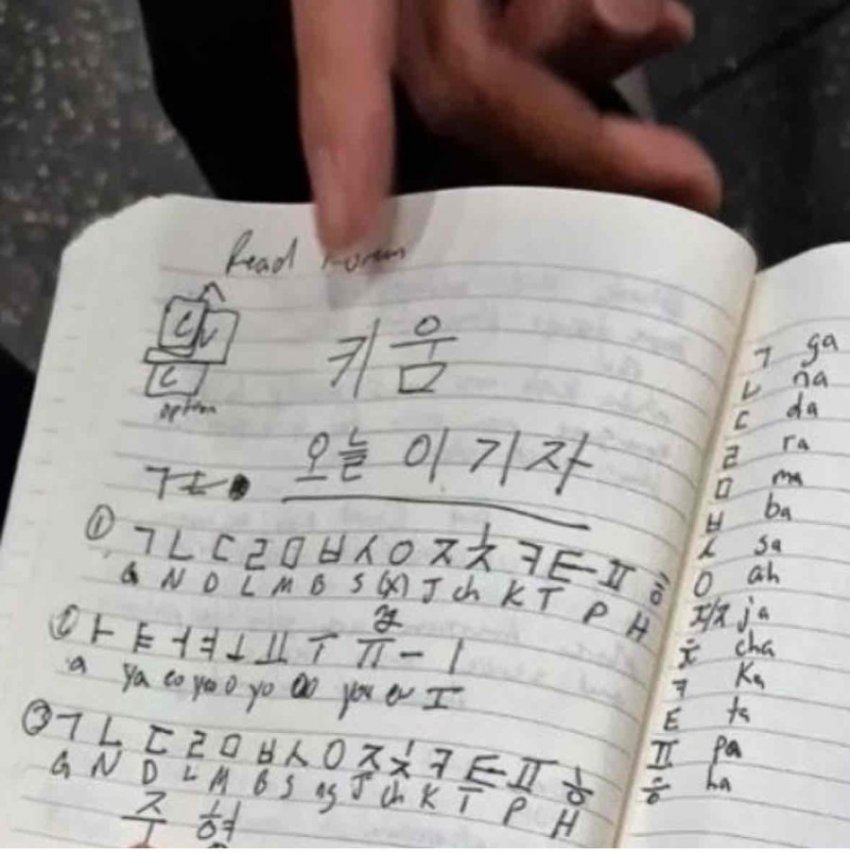 Read Korean
C V
C
option
키움
오늘 이기자
① ㄱ ㄴ ㄷ ㄹ ㅁ ㅂ ㅅ ㅇ ㅈ ㅊ ㅋ ㅌ ㅍ ㅎ
G N D L M B S (X) J ch K T P H
② ㅏ ㅑ ㅓ ㅕ ㅗ ㅛ ㅜ ㅠ ㅡ ㅣ
a ya eo yeo o yo oo you eu I
③ ㄱ ㄴ ㄷ ㄹ ㅁ ㅂ ㅅ ㅇ ㅈ ㅊ ㅋ ㅌ ㅍ ㅎ
G N D L M B S ng J ch K T P H
주 혁
ㄱ ga
ㄴ na
ㄷ da
ㄹ ra
ㅁ ma
ㅂ ba
ㅅ sa
ㅇ ah
ㅈ/ㅈ ja
ㅊ cha
ㅋ Ka
ㅌ ta
ㅍ pa
ㅎ ha